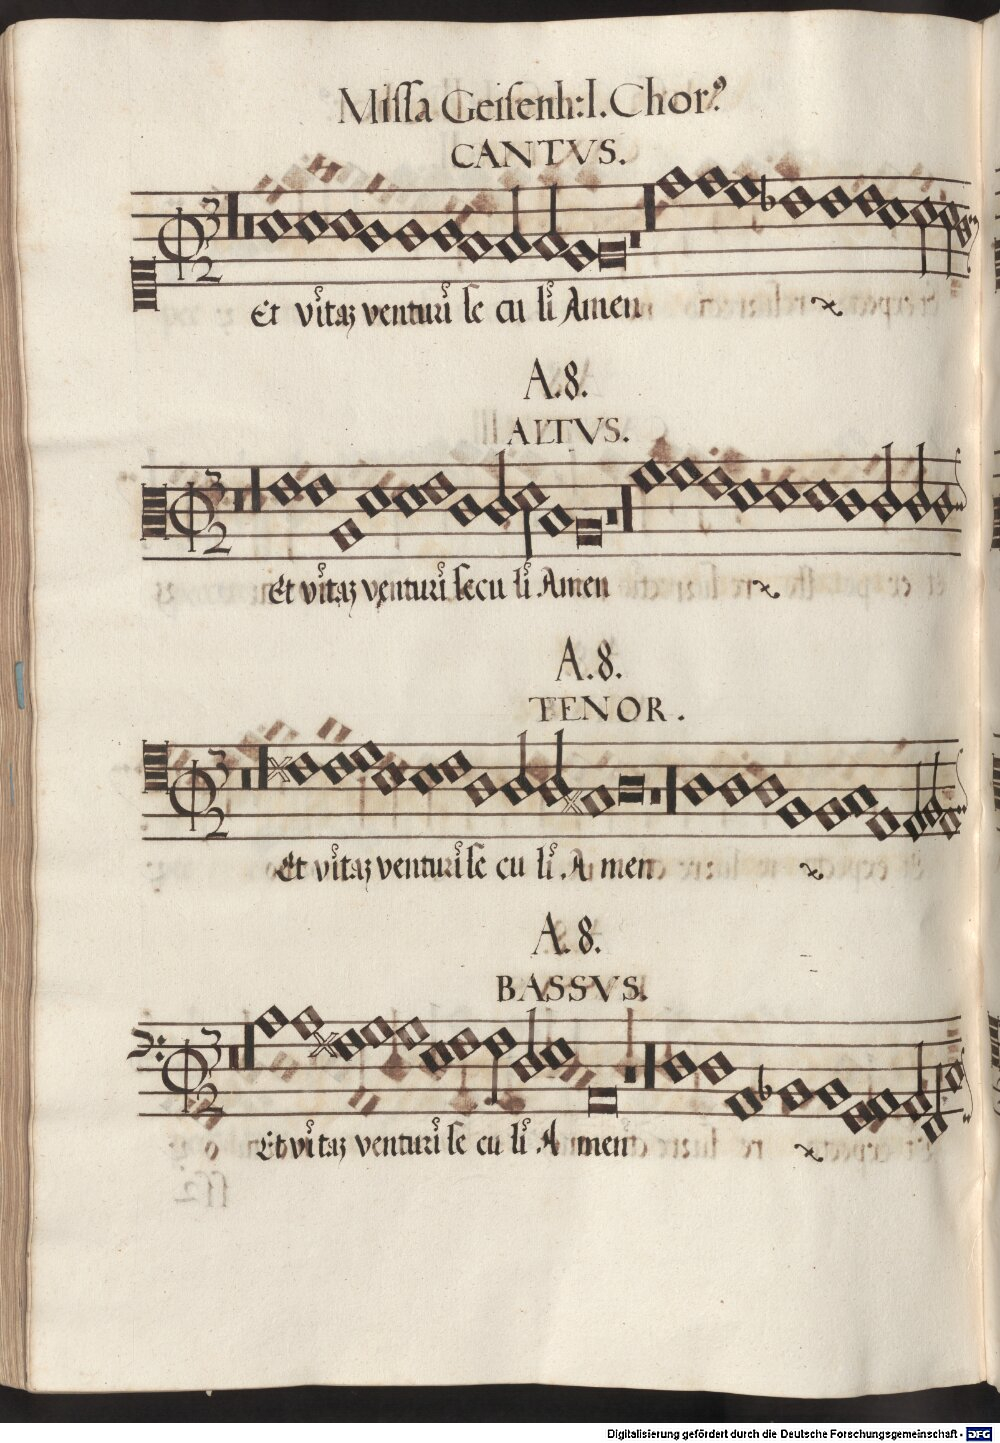 Missa Geisenh: I. Chorꝰ
CANTVS.
3
2
Et vitaꝫ venturi se cu li Amen
A. 8.
ALTVS.
3
2
Et vitaꝫ venturi secu li Amen
A. 8.
TENOR.
3
2
Et vitaꝫ venturi se cu li A men
A. 8.
BASSVS.
3
2
Et vi taꝫ venturi se cu li A men
Digitalisierung gefördert durch die Deutsche Forschungsgemeinschaft - DFG